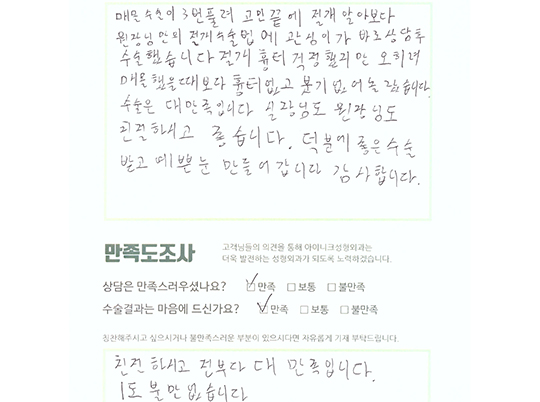 매몰 수술이 3번풀려 고민끝에 절개 알아보다
원장님 만의 절개수술법에 관심이가 바로상담후
수술했습니다 절개 흉터 걱정했지만 오히려
매몰했을때보다 흉터없고 붓기 없어놀랐습니다.
수술은 대만족입니다 실장님도 원장님도
친절하시고 좋습니다. 덕분에 좋은수술
받고 예쁜눈 만들어 갑니다 감사합니다.
만족도조사
고객님들의 의견을 통해 아이니크성형외과는
더욱 발전하는 성형외과가 되도록 노력하겠습니다.
상담은 만족스러우셨나요? ☑만족 □보통 □불만족
수술결과는 마음에 드신가요? ☑만족 □보통 □불만족
칭찬해주시고 싶으시거나 불만족스러운 부분이 있으시다면 자유롭게 기재 부탁드립니다.
친절하시고 전부다 대 만족입니다.
1도 불만없습니다